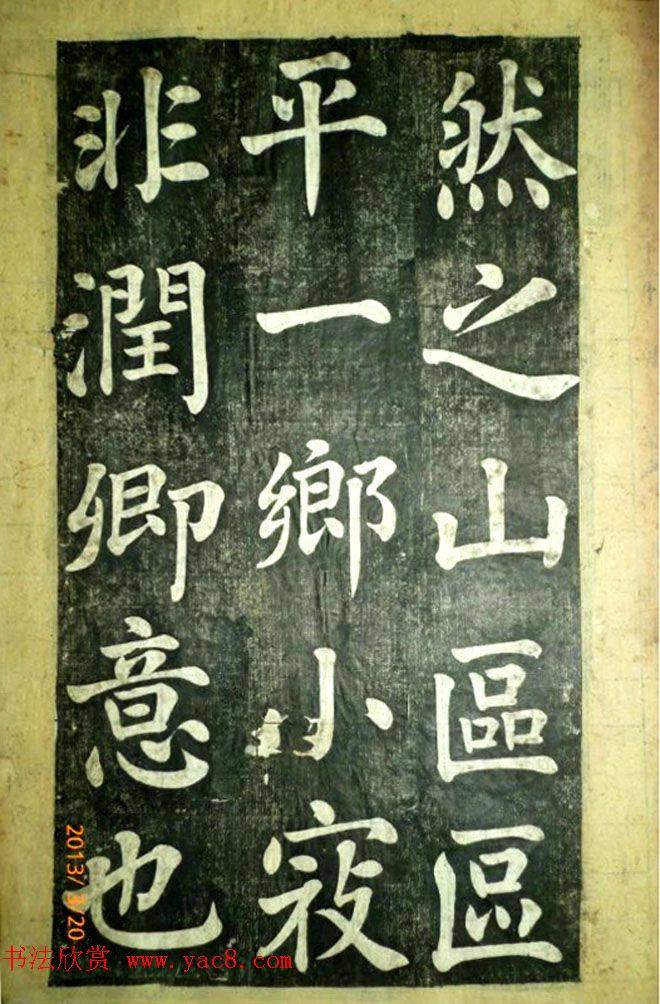 然之山區區
平一鄉小寇
非潤卿意也
2013/ 3/20
书法欣赏 www.yac8.com